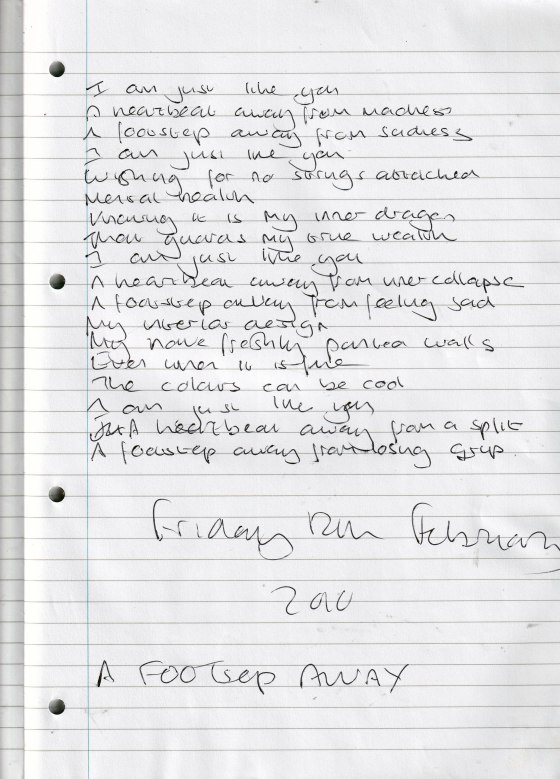 I am just like you
A heartbeat away from madness
A footstep away from sadness
I am just like you
Wishing for no strings attached
Mental health
Knowing it is my inner dragon
That guards my true wealth
I am just like you
A heartbeat away from inner collapse
A footstep away from feeling sad
My interior design
My freshly painted walls
Even when it is fine
The colours can be cool
I am just like you
Just A heartbeat away from a split
A footstep away from losing grip.
Friday 12th February
2010
A FOOTSEP AWAY